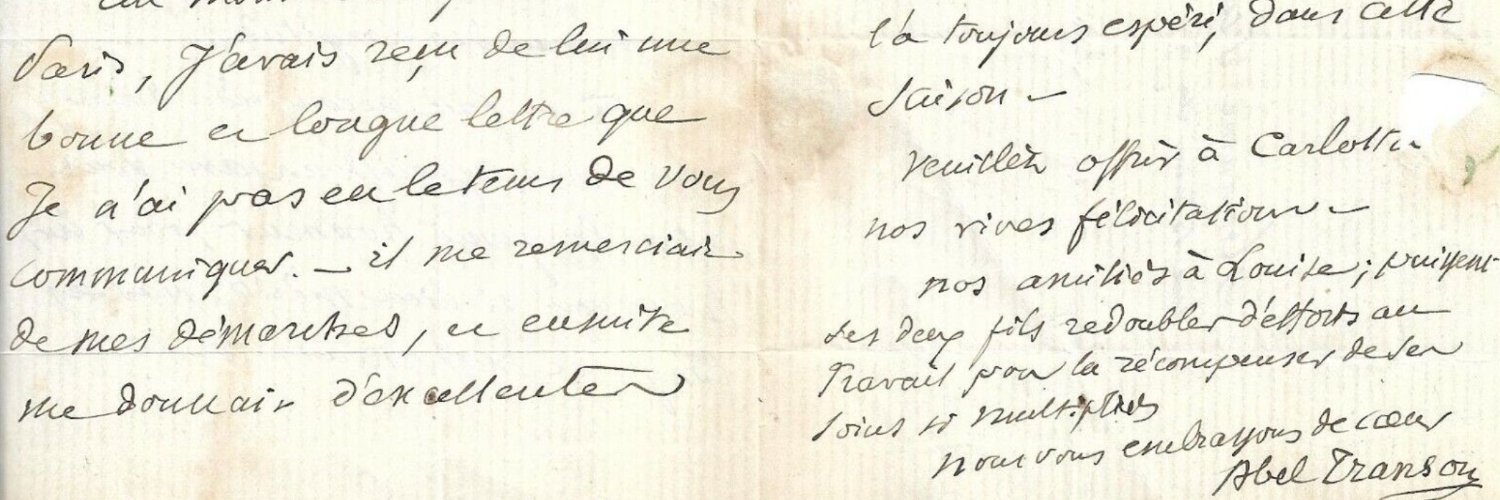 Paris, J'avais reçu de lui une
bonne et longue lettre que
Je n'ai pas eu le tems de vous
communiquer. — il me remerciait
de mes démarches, et ensuite
me donnait d'excellentes
l'a toujours espéré, dans cette
saison —
veuillez offrir à Carlotta
nos vives félicitations —
nos amitiés à Louise ; puissent
ses deux fils redoubler d'efforts au
Travail pour la récompenser de ses
soins si multipliés
nous vous embrassons de cœur
Abel Transon